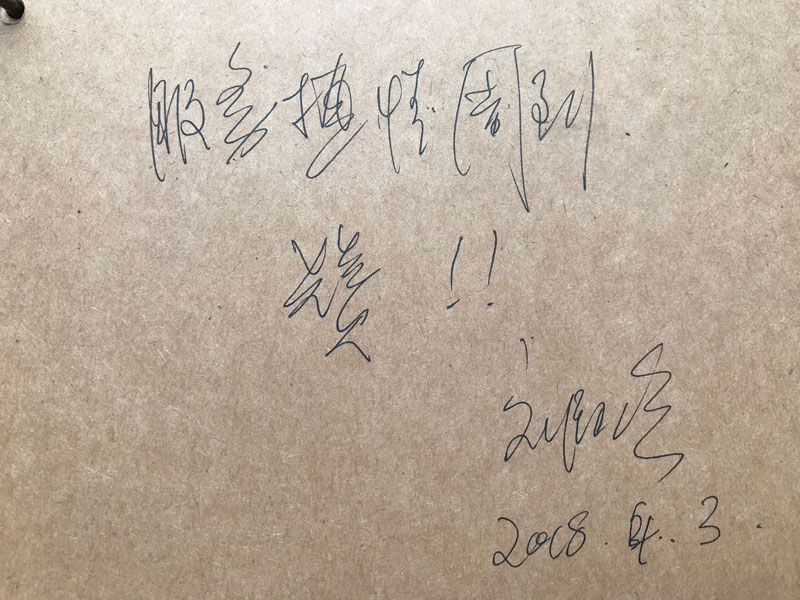 服务热情周到
赞!!
2018.4.3.